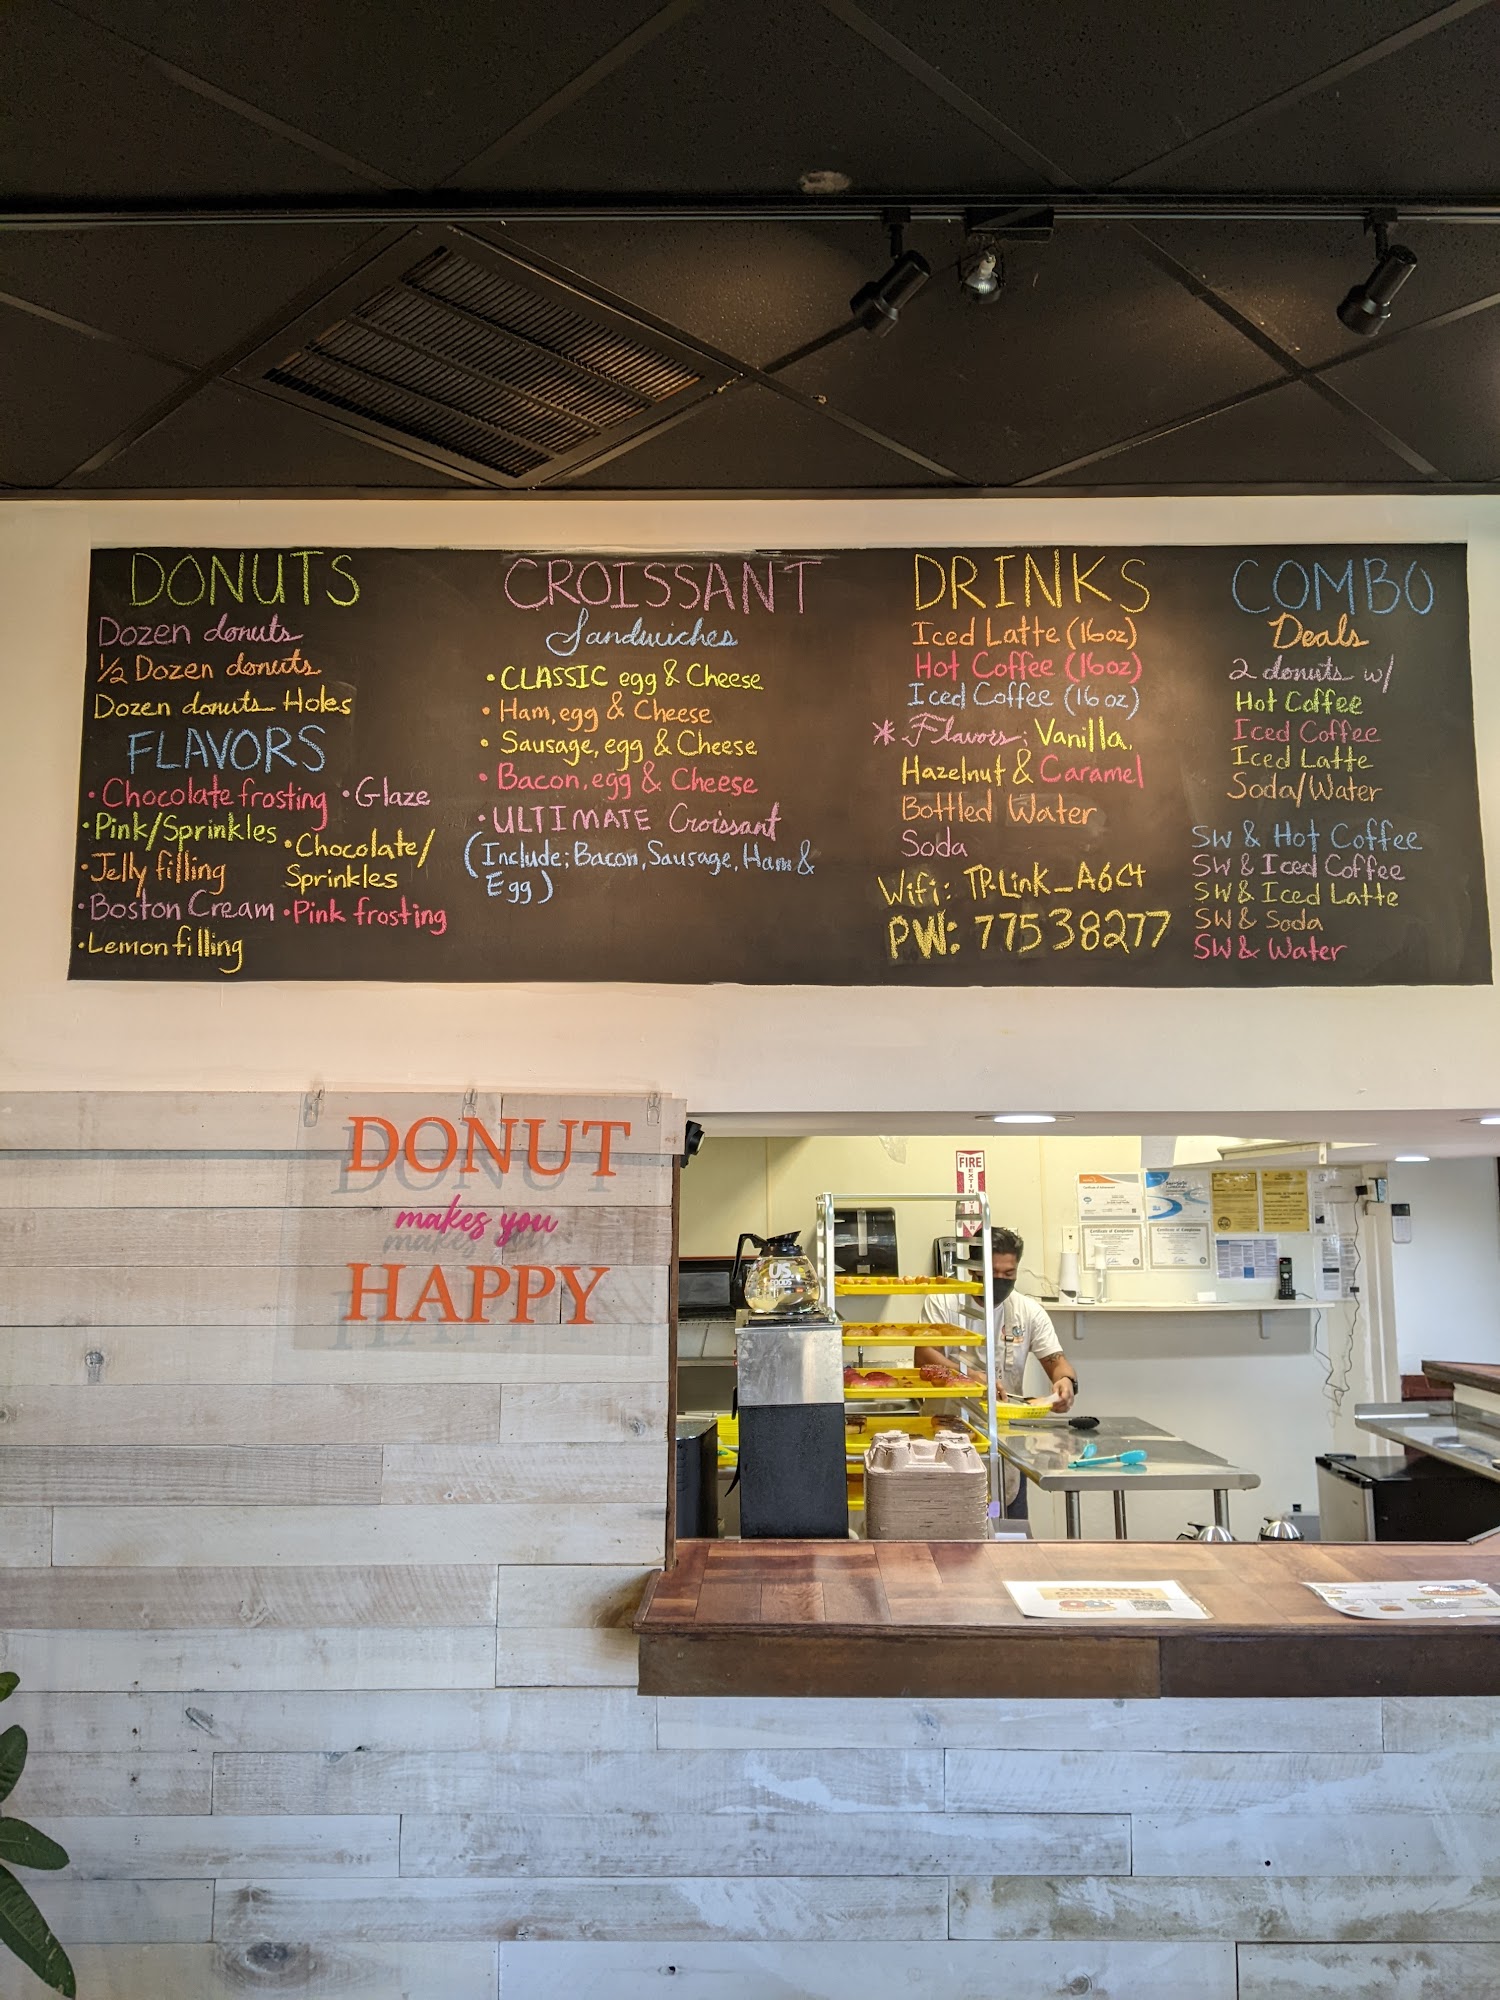 DONUTS
Dozen donuts
1/2 Dozen donuts
Dozen donuts Holes
FLAVORS
• Chocolate frosting • Glaze
• Pink/Sprinkles
• Chocolate/
Sprinkles
• Jelly filling
• Boston Cream • Pink frosting
• Lemon filling
CROISSANT
Sandwiches
• CLASSIC egg & Cheese
• Ham, egg & Cheese
• Sausage, egg & Cheese
• Bacon, egg & Cheese
• ULTIMATE Croissant
(Include; Bacon, Sausage, Ham &
Egg)
DRINKS
Iced Latte (16oz)
Hot Coffee (16oz)
Iced Coffee (16oz)
* Flavors; Vanilla,
Hazelnut & Caramel
Bottled Water
Soda
Wifi: TP-Link_A6C4
PW: 77538277
COMBO
Deals
2 donuts w/
Hot Coffee
Iced Coffee
Iced Latte
Soda/Water
SW & Hot Coffee
SW & Iced Coffee
SW & Iced Latte
SW & Soda
SW & Water
DONUT
makes you
HAPPY
FIRE
EXTINGUISHER
US.
FOODS
Certificate of Completion
Certificate of Completion
ONLINE
ORDERING